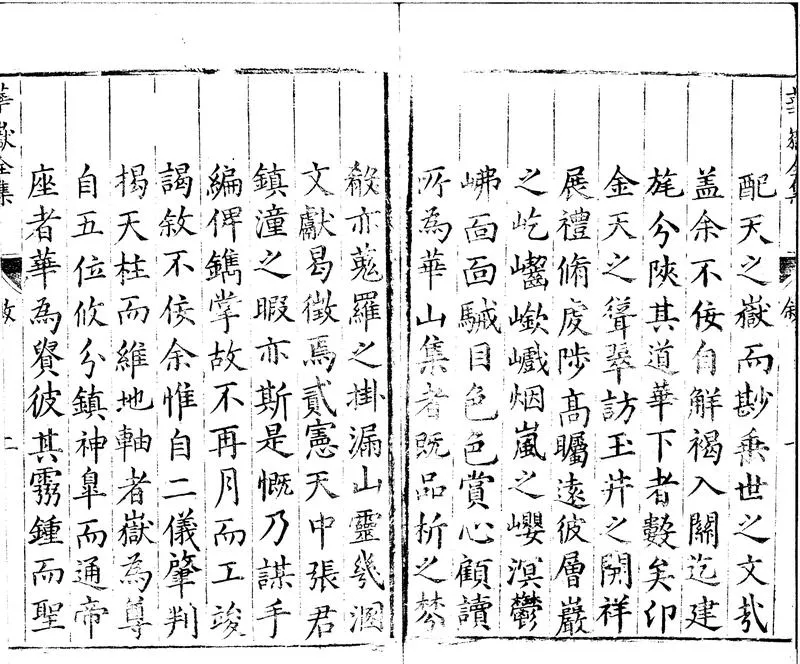 華嶽全集
敘
一
配天之嶽而尠垂世之文哉
盖余不佞自觧褐入關迄建
旄分陝其道華下者數矣卬
金天之聳翠訪玉井之開祥
展禮脩虔陟高矚遠彼層巖
之屹嶔巇烟嵐之巊溟鬱
岪面面駴目色色賞心顧讀
所為華山集者既品析之棼
殽亦蒐羅之掛漏山靈幾溷
文獻曷徵焉貳憲天中張君
鎮潼之暇亦斯是慨乃謀手
編俾鐫掌故不再月而工竣
謁敘不佞余惟自二儀肇判
揭天柱而維地軸者嶽為尊
自五位攸分鎮神臯而通帝
座者華為賢彼其霛鍾而聖
華嶽全集
敘
二